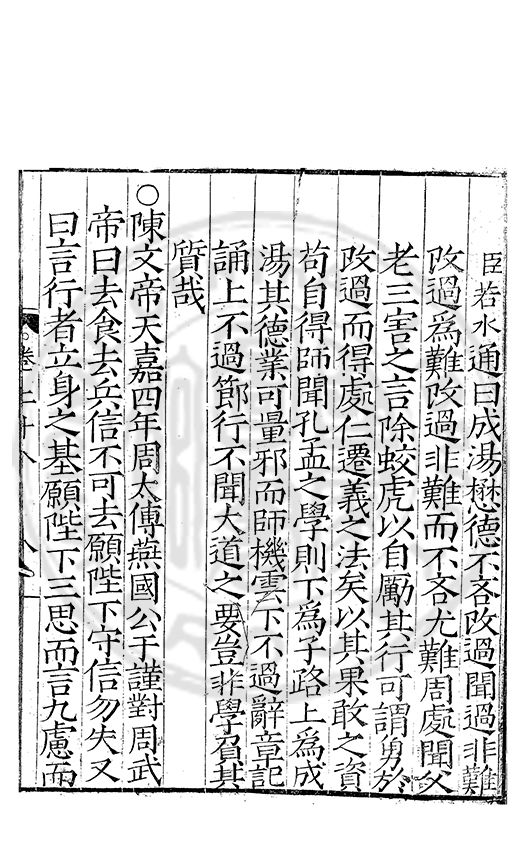 臣若水通曰成湯懋德不吝改過聞過非難
改過為難改過非難而不吝尤難周處聞父
老三害之言除蛟虎以自勵其行可謂勇於
改過而得處仁遷義之法矣以其果敢之資
苟自得師聞孔孟之學則下為子路上為成
湯其德業可量邪而師機雲下不過辭章記
誦上不過節行不聞大道之要豈非學負其
質哉
○陳文帝天嘉四年周太傅燕國公于謹對周武
帝曰去食去兵信不可去願陛下守信勿失又
曰言行者立身之基願陛下三思而言九慮而
卷二十八